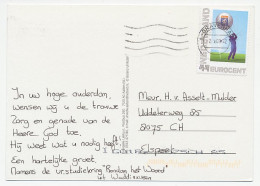 In uw hoge ouderdom,
wensen wij u de trouwe
Zorg en genade van de
Heere God toe.
Hij weet wat u nodig heeft!
Een hartelijke groet,
Namens de vr.studiekring "Rondom het Woord"
uit Waddinxveen
44 EUROCENT
Mevr. H. v. Asselt-Mulder
Uddelerweg 85
8075 CH
Elspeet